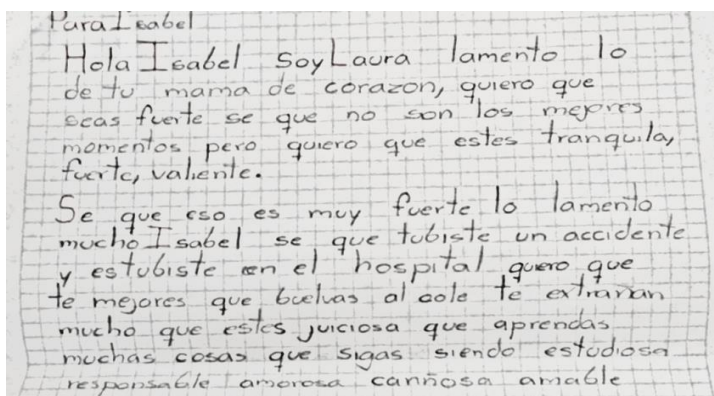 Para Isabel
Hola Isabel soy Laura lamento lo
de tu mama de corazon, quiero que
seas fuerte se que no son los mejores
momentos pero quiero que estes tranquila,
fuerte, valiente.
Se que eso es muy fuerte lo lamento
mucho Isabel se que tubiste un accidente
y estubiste en el hospital quero que
te mejores que buelvas al cole te extrañan
mucho que estes juiciosa que aprendas
muchas cosas que sigas siendo estudiosa
responsable amorosa cariñosa amable